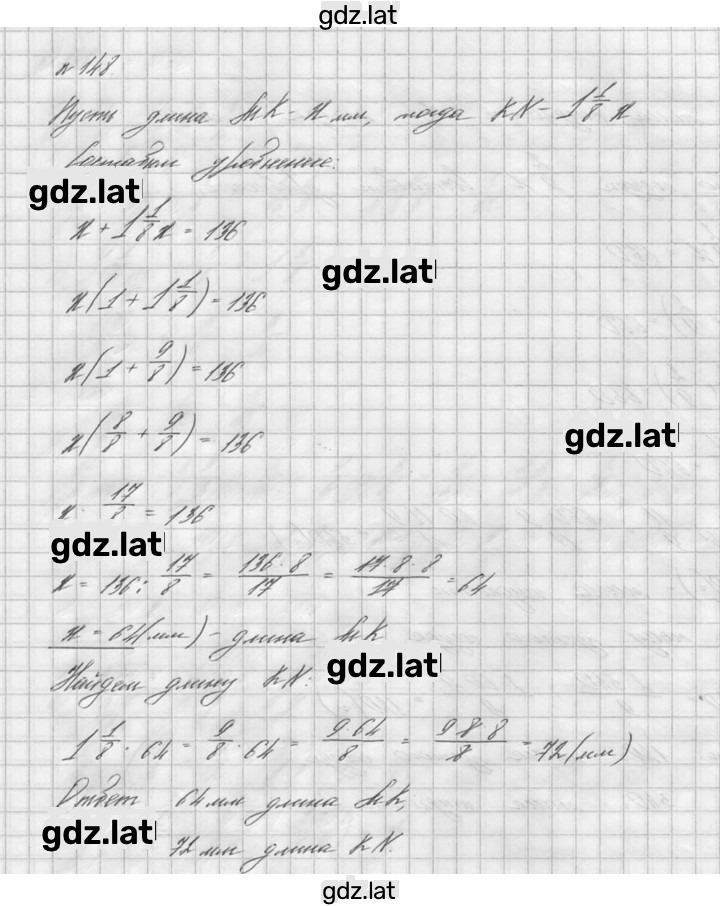 gdz.lat
№ 148
Пусть длина МК - x мм, тогда KN - 1 1/8 x
Составим уравнение:
gdz.lat
x + 1 1/8 x = 136
gdz.lat
x(1 + 1 1/8) = 136
x(1 + 9/8) = 136
x(8/8 + 9/8) = 136
gdz.lat
x · 17/8 = 136
gdz.lat
x = 136 : 17/8 = 136·8/17 = 17·8·8/17 = 64
x = 64(мм) - длина МК
gdz.lat
Найдем длину KN:
1 1/8 · 64 = 9/8 · 64 = 9·64/8 = 9·8·8/8 = 72(мм)
Ответ 64 мм длина МК,
gdz.lat
72 мм длина KN.
gdz.lat